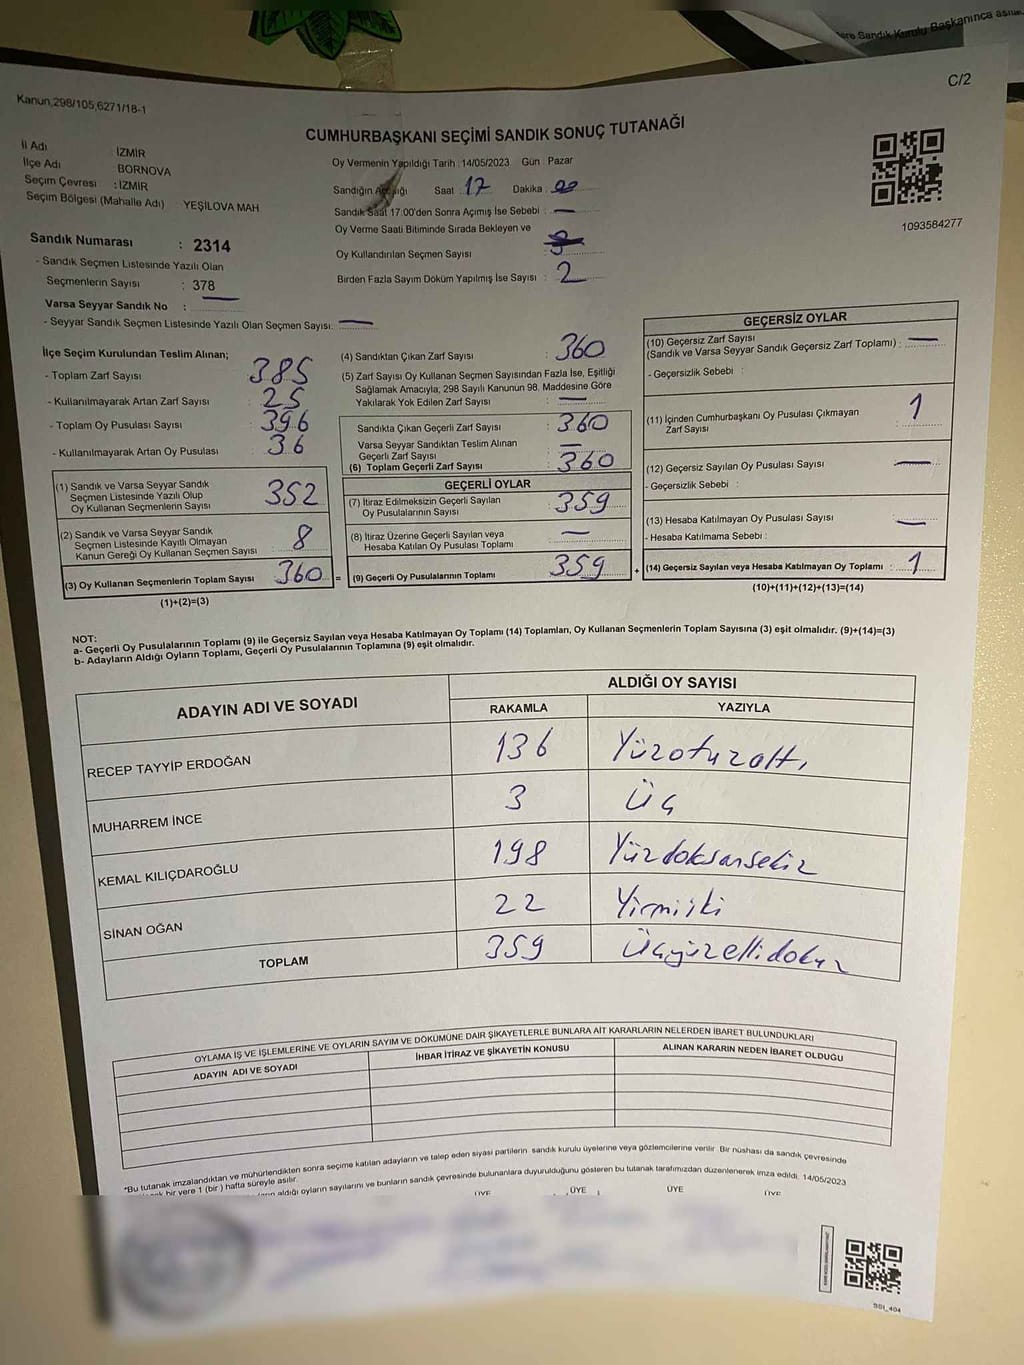 ere Sandık Kurulu Başkanınca
C/2
Kanun,298/105,6271/18-1
CUMHURBAŞKANI SEÇİMİ SANDIK SONUÇ TUTANAĞI
İl Adı İZMİR
İlçe Adı BORNOVA
Seçim Çevresi : İZMİR
Seçim Bölgesi (Mahalle Adı) YEŞİLOVA MAH
Oy Vermenin Yapıldığı Tarih : 14/05/2023 Gün : Pazar
Sandığın Açıldığı Saat : 17 Dakika : 00
Sandık Saat 17:00'den Sonra Açımış İse Sebebi : —
Oy Verme Saati Bitiminde Sırada Bekleyen ve
Oy Kullandırılan Seçmen Sayısı
Birden Fazla Sayım Döküm Yapılmış İse Sayısı : 2
1093584277
Sandık Numarası : 2314
- Sandık Seçmen Listesinde Yazılı Olan
Seçmenlerin Sayısı : 378
Varsa Seyyar Sandık No : —
- Seyyar Sandık Seçmen Listesinde Yazılı Olan Seçmen Sayısı: —
İlçe Seçim Kurulundan Teslim Alınan;
- Toplam Zarf Sayısı : 385
- Kullanılmayarak Artan Zarf Sayısı : 25
- Toplam Oy Pusulası Sayısı : 396
- Kullanılmayarak Artan Oy Pusulası : 36
(1) Sandık ve Varsa Seyyar Sandık
Seçmen Listesinde Yazılı Olup
Oy Kullanan Seçmenlerin Sayısı 352
(2) Sandık ve Varsa Seyyar Sandık
Seçmen Listesinde Kayıtlı Olmayan
Kanun Gereği Oy Kullanan Seçmen Sayısı 8
(3) Oy Kullanan Seçmenlerin Toplam Sayısı 360 =
(1)+(2)=(3)
(4) Sandıktan Çıkan Zarf Sayısı : 360
(5) Zarf Sayısı Oy Kullanan Seçmen Sayısından Fazla İse, Eşitliği
Sağlamak Amacıyla; 298 Sayılı Kanunun 98. Maddesine Göre
Yakılarak Yok Edilen Zarf Sayısı : —
Sandıkta Çıkan Geçerli Zarf Sayısı : 360
Varsa Seyyar Sandıktan Teslim Alınan
Geçerli Zarf Sayısı : —
(6) Toplam Geçerli Zarf Sayısı : 360
GEÇERLİ OYLAR
(7) İtiraz Edilmeksizin Geçerli Sayılan
Oy Pusulalarının Sayısı : 359
(8) İtiraz Üzerine Geçerli Sayılan veya
Hesaba Katılan Oy Pusulası Toplamı : —
(9) Geçerli Oy Pusulalarının Toplamı 359 +
GEÇERSİZ OYLAR
(10) Geçersiz Zarf Sayısı
(Sandık ve Varsa Seyyar Sandık Geçersiz Zarf Toplamı) : —
- Geçersizlik Sebebi :
(11) İçinden Cumhurbaşkanı Oy Pusulası Çıkmayan
Zarf Sayısı : 1
(12) Geçersiz Sayılan Oy Pusulası Sayısı : —
- Geçersizlik Sebebi :
(13) Hesaba Katılmayan Oy Pusulası Sayısı : —
- Hesaba Katılmama Sebebi :
(14) Geçersiz Sayılan veya Hesaba Katılmayan Oy Toplamı : 1
(10)+(11)+(12)+(13)=(14)
NOT:
a- Geçerli Oy Pusulalarının Toplamı (9) ile Geçersiz Sayılan veya Hesaba Katılmayan Oy Toplamı (14) Toplamları, Oy Kullanan Seçmenlerin Toplam Sayısına (3) eşit olmalıdır. (9)+(14)=(3)
b- Adayların Aldığı Oyların Toplamı, Geçerli Oy Pusulalarının Toplamına (9) eşit olmalıdır.
ADAYIN ADI VE SOYADI ALDIĞI OY SAYISI
RAKAMLA YAZIYLA
RECEP TAYYİP ERDOĞAN 136 Yüzotuzaltı
MUHARREM İNCE 3 Üç
KEMAL KILIÇDAROĞLU 198 Yüzdoksansekiz
SİNAN OĞAN 22 Yirmiiki
TOPLAM 359 Üçyüzellidokuz
OYLAMA İŞ VE İŞLEMLERİNE VE OYLARIN SAYIM VE DÖKÜMÜNE DAİR ŞİKAYETLERLE BUNLARA AİT KARARLARIN NELERDEN İBARET BULUNDUKLARI
ADAYIN ADI VE SOYADI İHBAR İTİRAZ VE ŞİKAYETİN KONUSU ALINAN KARARIN NEDEN İBARET OLDUĞU
*Bu tutanak imzalandıktan ve mühürlendikten sonra seçime katılan adayların ve talep eden siyasi partilerin sandık kurulu üyelerine veya gözlemcilerine verilir. Bir nüshası da sandık çevresinde
bir yere 1 (bir) hafta süreyle asılır.
aldığı oyların sayılarını ve bunların sandık çevresinde bulunanlara duyurulduğunu gösteren bu tutanak tarafımızdan düzenlenerek imza edildi. 14/05/2023
ÜYE ÜYE ÜYE ÜYE
SSI_404